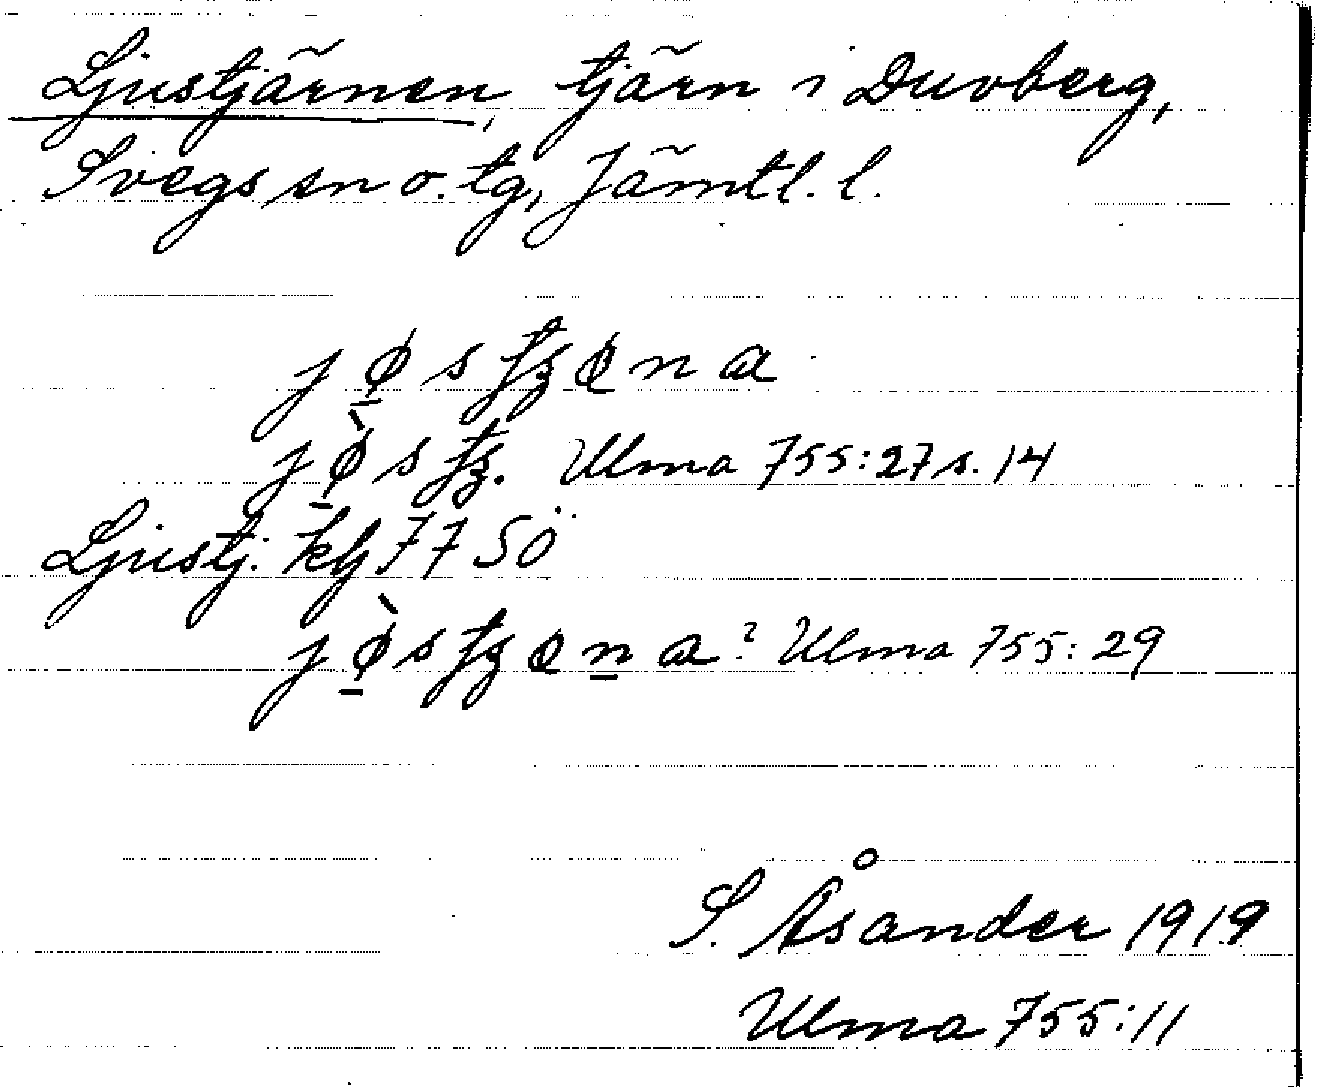 Ljustjärnen, tjärn i Duvberg,
Svegs sn o. tg, Jämtl. l.
Ulma 755:27 s. 14
Ljustj. kbl 77 SÖ
? Ulma 755:29
S. Åsander 1919
Ulma 755:11